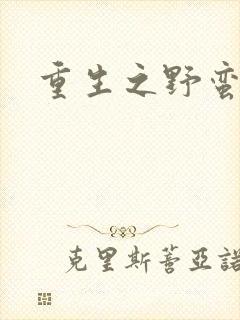 重生之野蛮
克里斯蒂亚諾